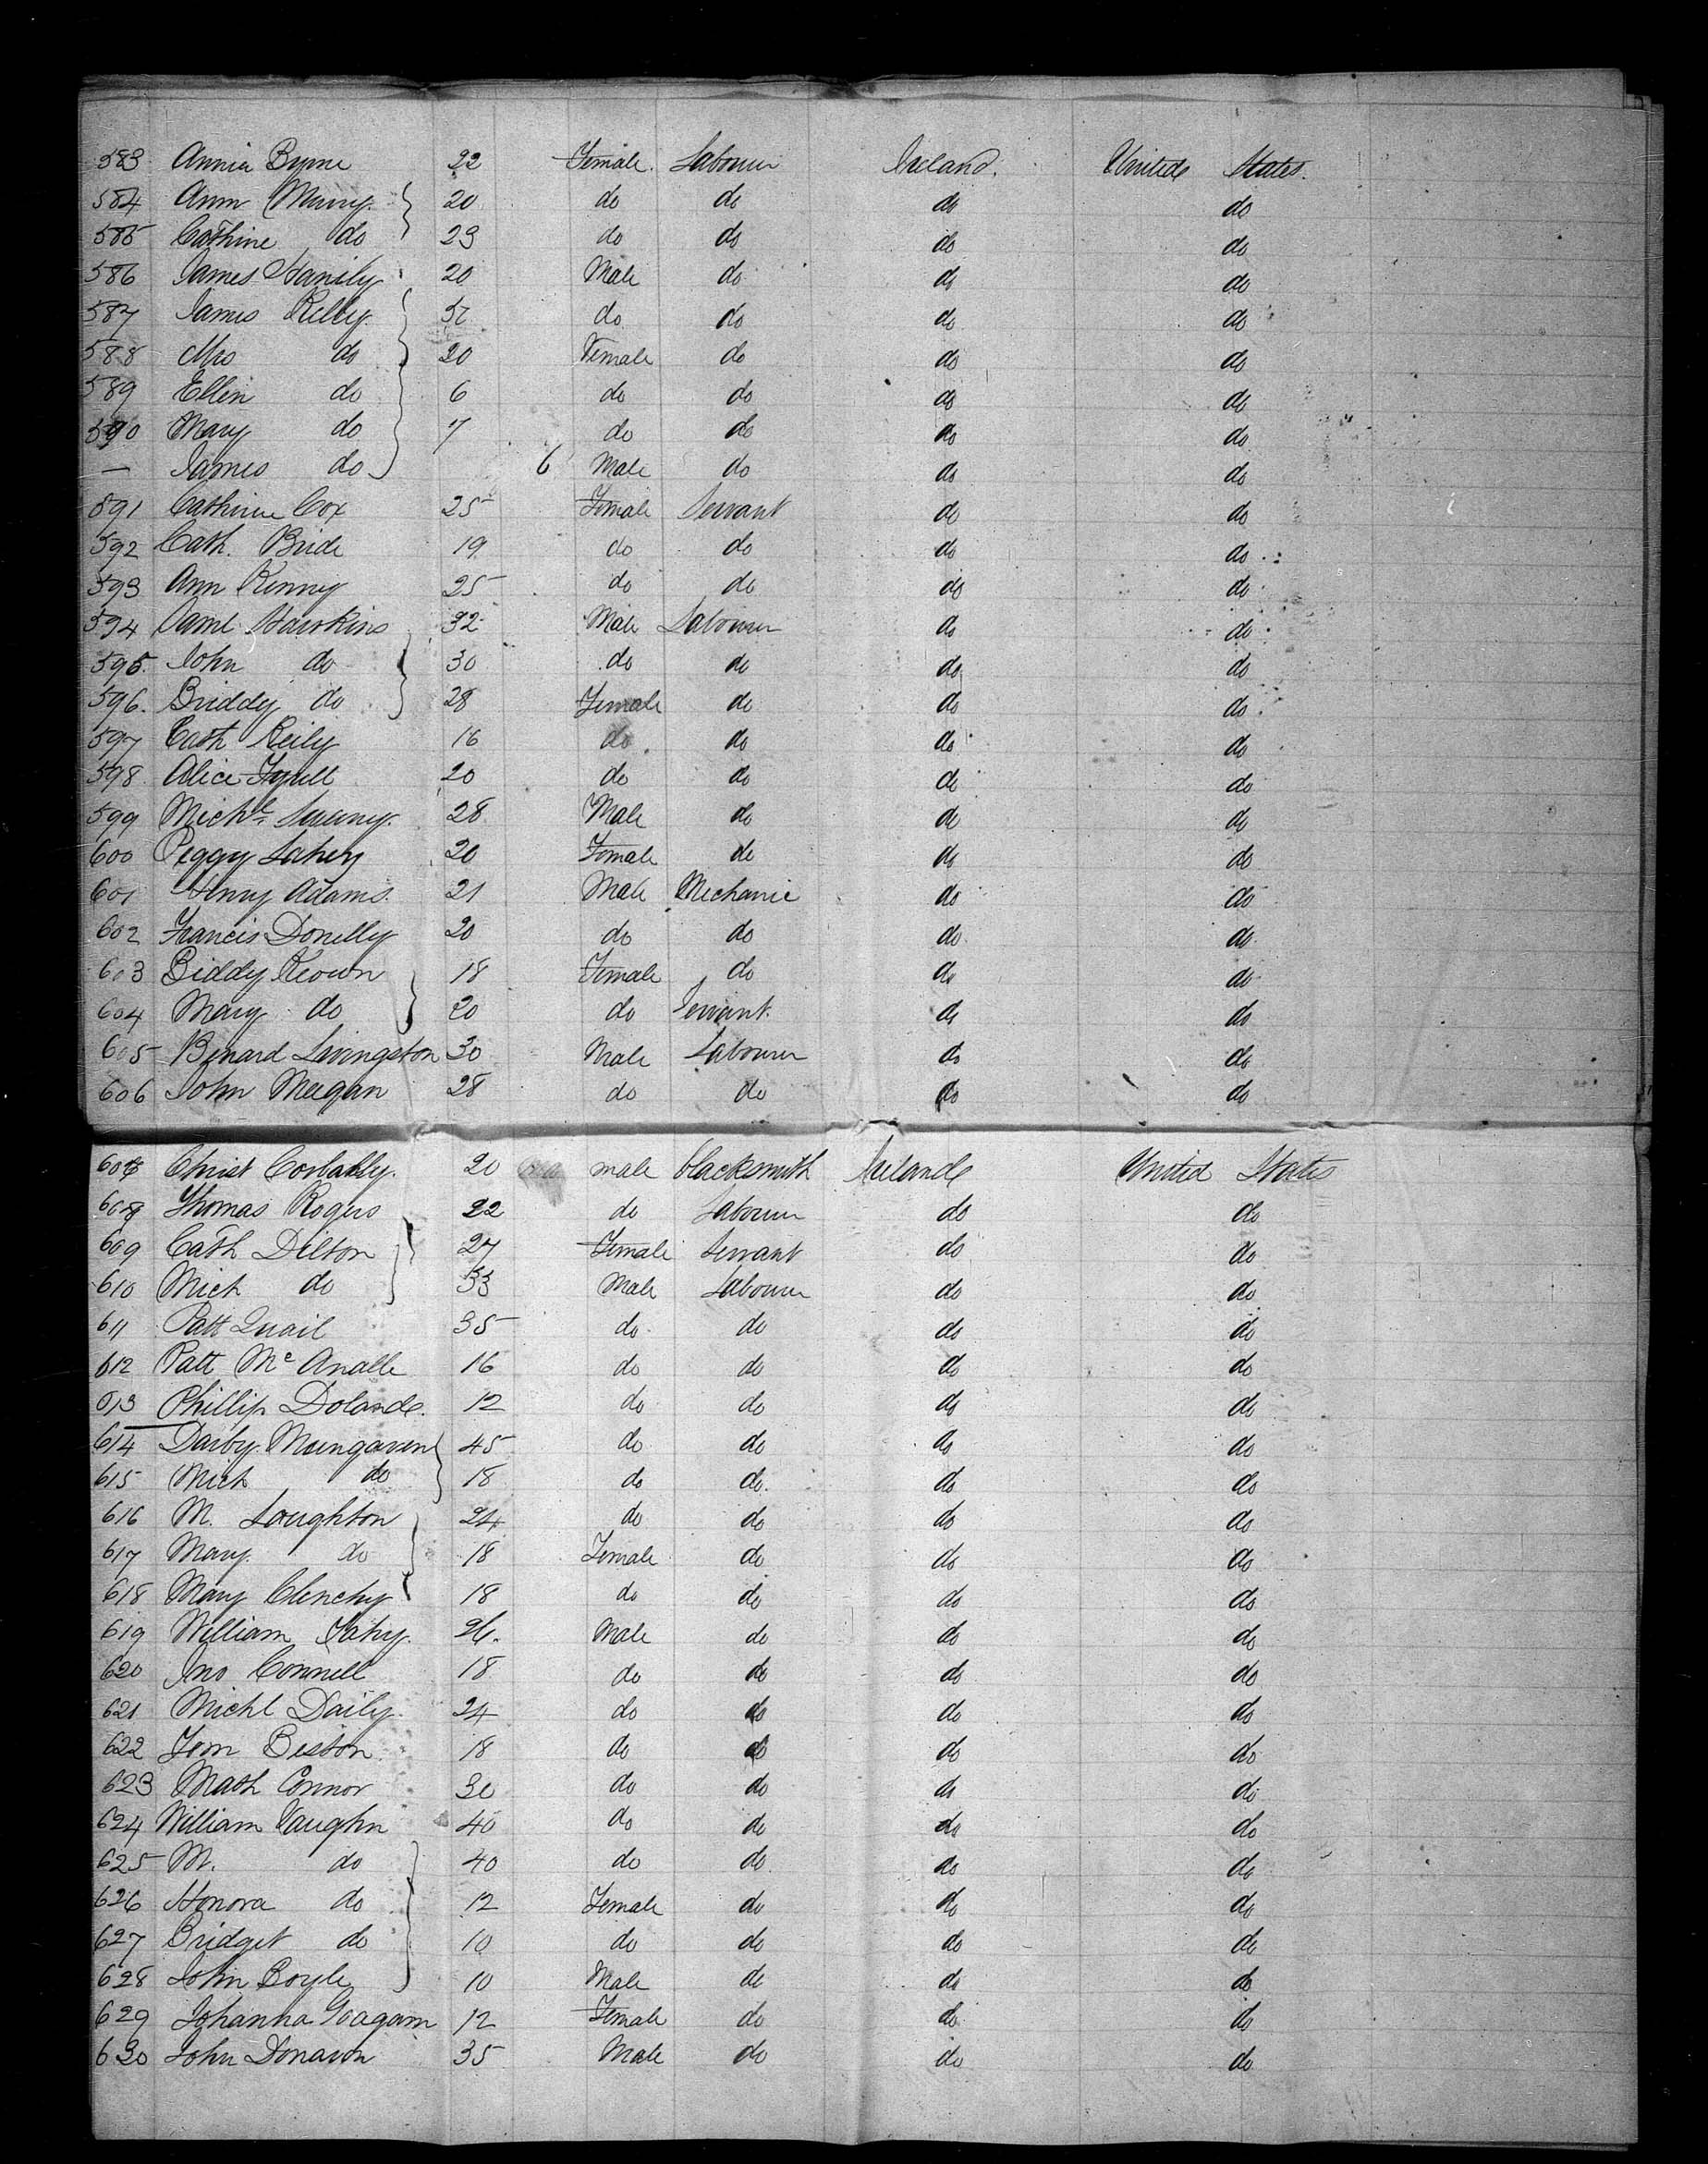 583 Annia Byrne 22 Female. Labourer Ireland. United States.
584 Ann Murry. 20 do do do do
585 Cathine do 23 do do do do
586 James Hanily 20 Male do do do
587 James Kelly. do do do do
588 Mrs do 20 Female do do do
589 Ellen do 6 do do do do
590 Mary do 7 do do do do
— James do 6 Male do do do
591 Catherine Cox 25 Female Servant do do
592 Cath. Bride 19 do do do do
593 Ann Kenny 25 do do do do
594 Saml Hawkins 32 Male Labourer do do
595. John do 30 do do do do
596. Briddy do 28 Female do do do
597 Cath Reily 16 do do do do
598 Alice 20 do do do do
599 Michl. 28 Male do do do
600 Peggy Lahey 20 Female do do do
601 Henry Adams. 21 Male Mechanic do do
602 Francis Donelly 20 do do do do
603 Biddy Keown 18 Female do do do
604 Mary do 20 do Servant. do do
605 Benard Livingston 30 Male Labourer do do
606 John Meegan 28 do do do do
Christ 20 male blacksmith Ireland United States
608 Thomas Rogers 22 do Labourer do do
609 Cath Dilton 27 Female Servant do do
610 Mich do 33 Male Labourer do do
611 Patt Quail 35 do do do do
612 Patt Mc Analle 16 do do do do
613 Phillip Dolande. 12 do do do do
614 Darby Mungaven 45 do do do do
615 Mich do 18 do do. do do
616 M. Loughton 24 do do do do
617 Mary. do 18 Female do do do
618 Mary Clenchy 18 do do do do
619 William Fahy. 26. Male do do do
620 Jno Connell 18 do do do do
621 Michl Daily. 24 do do do do
622 Tom Beston 18 do do do do
623 Math Connor 30 do do do do
624 William Vaughn 40 do do do do
625 M. do 40 do do do do
626 Honora do 12 Female do do do
627 Bridget do 10 do do do do
628 John Boyle 10 Male do do do
629 Johanna 12 Female do do do
630 John Donavon 35 Male do do do